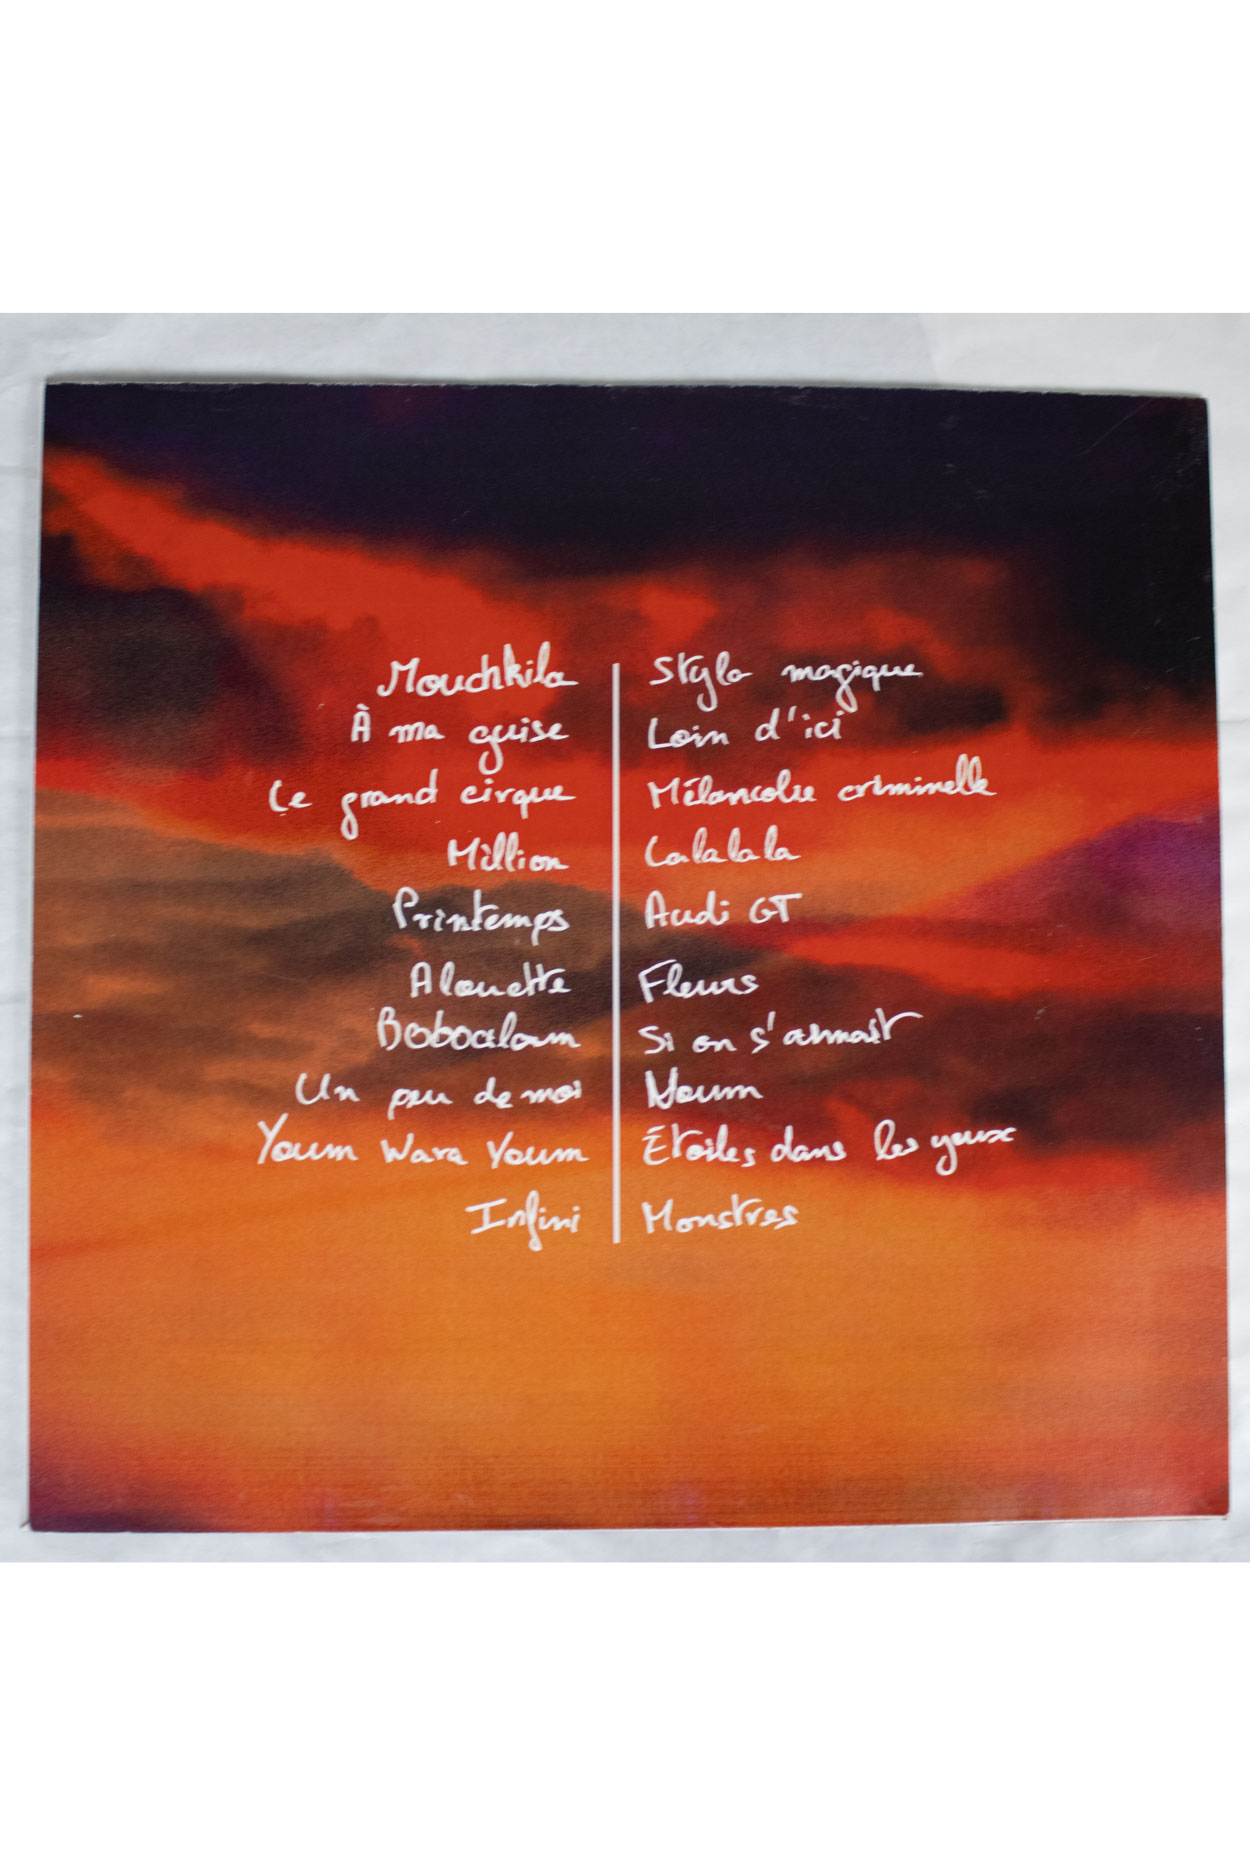 Mouchkila
À ma guise
Le grand cirque
Million
Printemps
Alouette
Bobocaloum
Un peu de moi
Youm Wara Youm
Infini
Stylo magique
Loin d'ici
Mélancolie criminelle
Lalalala
Audi GT
Fleurs
Si on s'aimait
Noum
Étoiles dans les yeux
Monstres